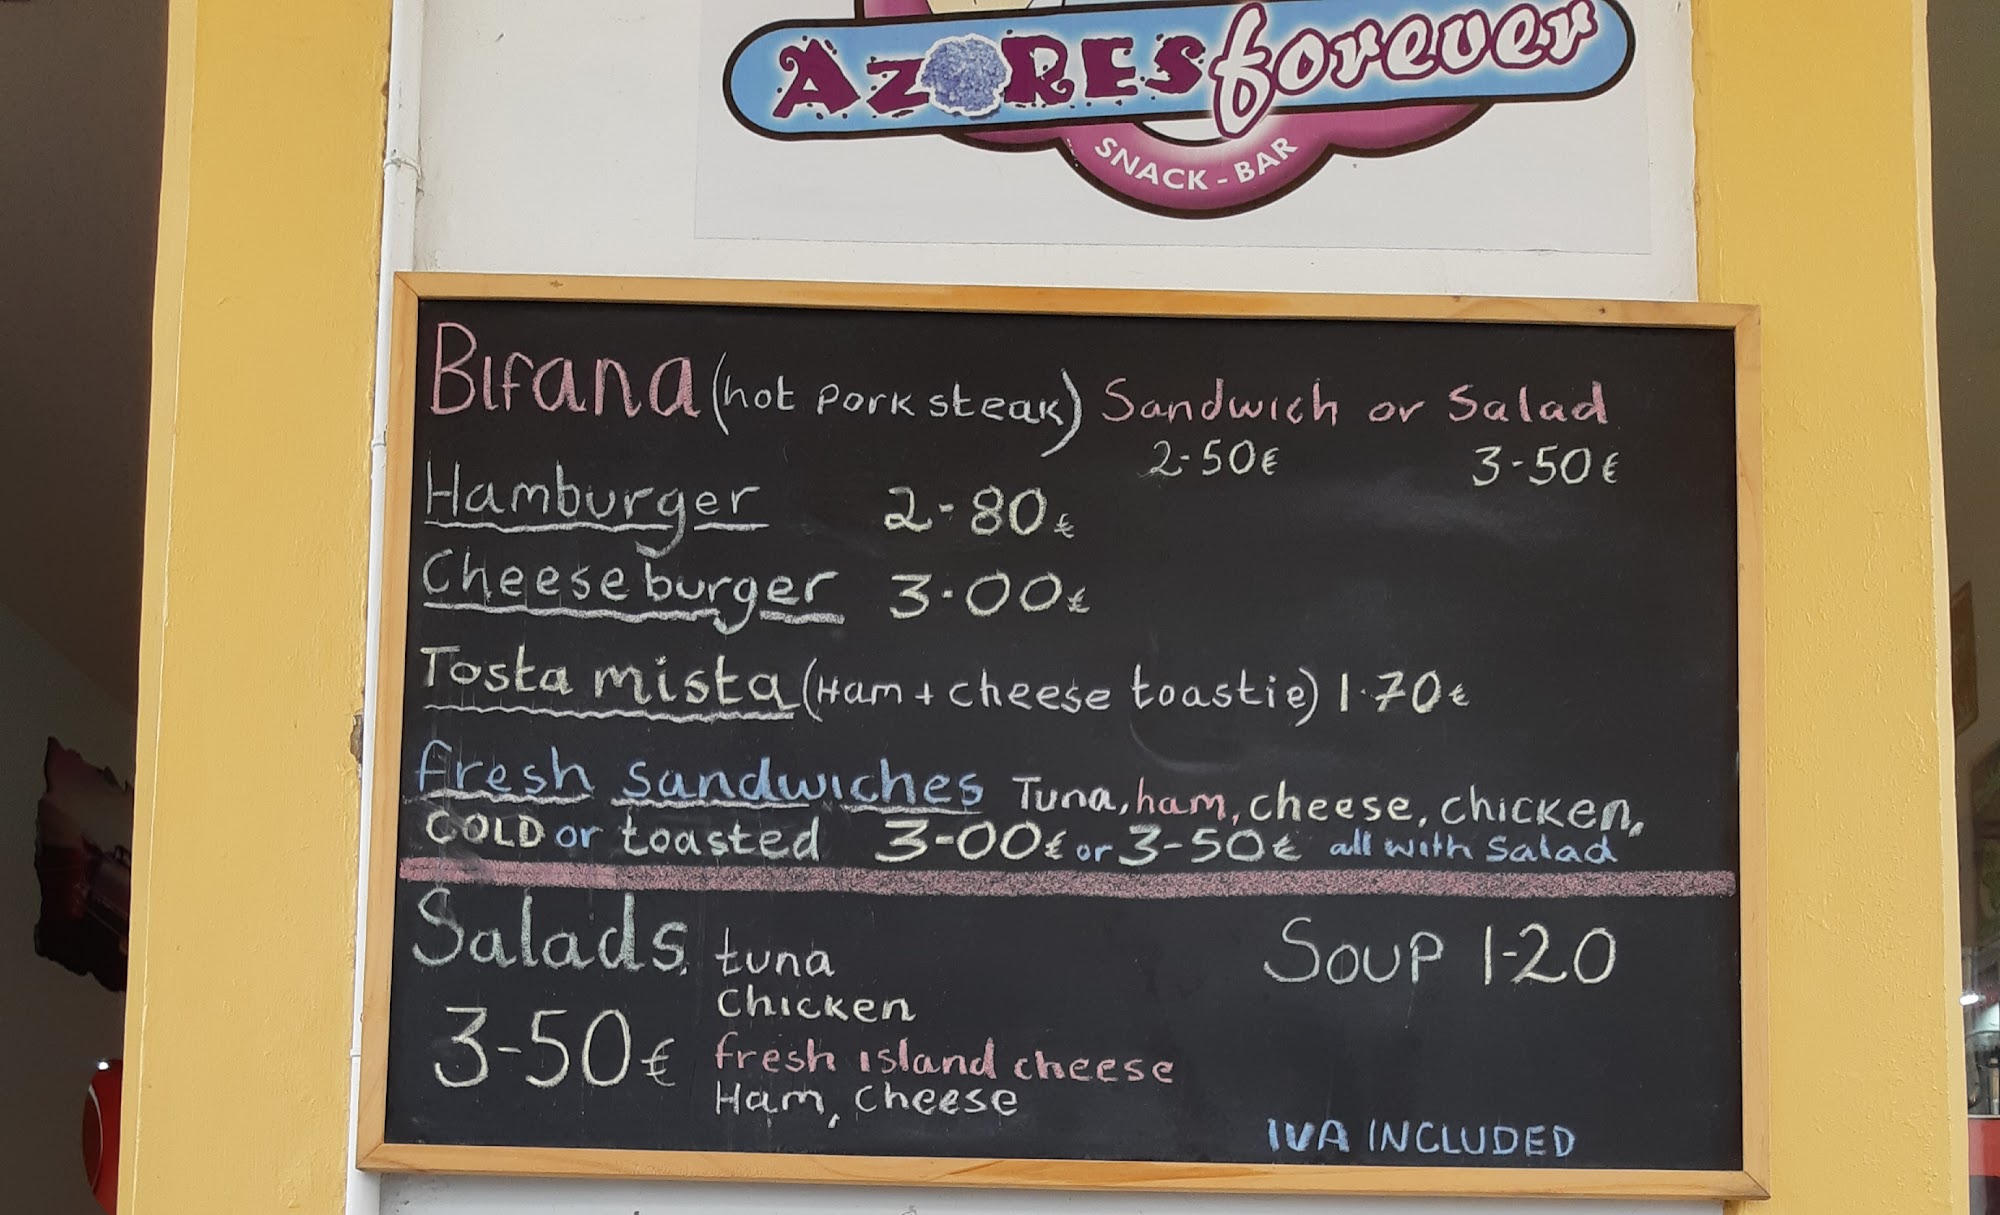 AZORES forever
SNACK-BAR
Bifana (hot pork steak) Sandwich or Salad
2-50€ 3-50€
Hamburger 2-80€
Cheeseburger 3.00€
Tosta mista (Ham + cheese toastie) 1.70€
fresh sandwiches Tuna, ham, cheese, chicken,
COLD or toasted 3-00€ or 3-50€ all with salad
Salads, tuna SOUP 1-20
Chicken
3-50€ fresh island cheese
Ham, cheese
IVA INCLUDED